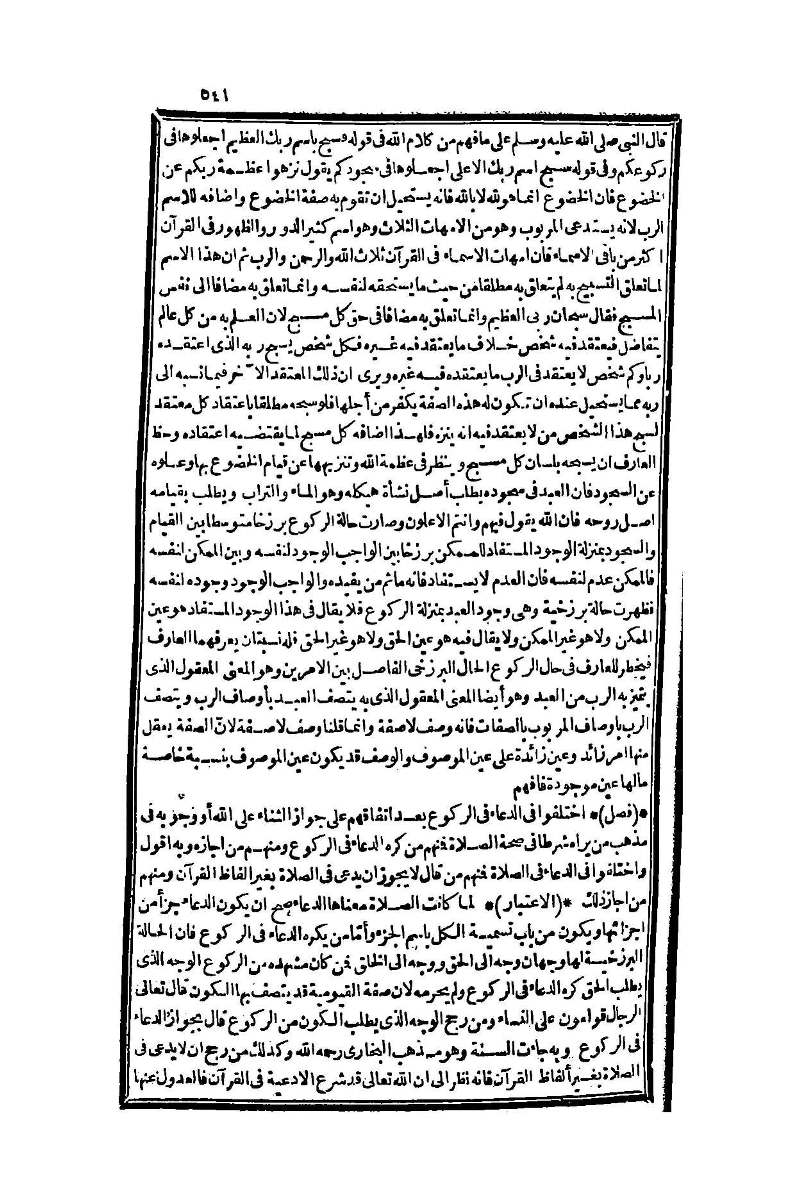 ٥٤١
قال النبي صلى الله عليه وسلم على ما فهم من كلام الله في قوله فسبح باسم ربك العظيم اجعلوها في
ركوعكم وفي قوله سبح اسم ربك الاعلى اجعلوها في سجودكم يقول نزهوا عظمة ربكم عن
الخضوع فان الخضوع انما هو لله لا بالله فانه يستحيل ان تقوم به صفة الخضوع واضافه للاسم
الرب لانه يستدعى المربوب وهو من الامهات الثلاث وهو اسم كثير الدور والظهور في القرآن
اكثر من باقى الاسماء فان امهات الاسماء في القرآن ثلاث الله والرحمن والرب ثم ان هذا الاسم
لما تعلق التسبيح به لم يتعلق به مطلقا من حيث ما يستحقه لنفسه وانما تعلق به مضافا الى نفس
المسبح فقال سبحان ربى العظيم وانما تعلق به مضافا في حق كل مسبح لان العلم به من كل عالم
يتفاضل فيعتقد فيه شخص خلاف ما يعتقد فيه غيره فكل شخص يسبح ربه الذى اعتقده
ربا وكم شخص لا يعتقد في الرب ما يعتقده فيه غيره ويرى ان ذلك المعتقد الآخر فيما نسبه الى
ربه مما يستحيل عنده ان تكون له هذه الصفة يكفر من أجلها فلو سبحه مطلقا باعتقاد كل معتقد
لسبح هذا الشخص من لا يعتقد فيه انه ينزه فلهذا اضافه كل مسبح لما يقتضيه اعتقاده وحظ
العارف ان يسبحه بلسان كل مسبح وينظر في عظمة الله وتنزيهها عن قيام الخضوع بها وعلوه
عن السجود فان العبد في سجوده يطلب أصل نشأة هيكله وهو الماء والتراب ويطلب بقيامه
اصل روحه فان الله يقول فيهم وانتم الاعلون وصارت حالة الركوع برزخا متوسطا بين القيام
والسجود بمنزلة الوجود المستفاد للممكن برزخا بين الواجب الوجود لنفسه وبين الممكن لنفسه
فالممكن عدم لنفسه فان العدم لا يستفاد فانه ماثم من يفيده والواجب الوجود وجوده لنفسه
فظهرت حالة برزخية وهى وجود العبد بمنزلة الركوع فلا يقال في هذا الوجود المستفاد هو عين
الممكن ولا هو غير الممكن ولا يقال فيه هو عين الحق ولا هو غير الحق فله نسبتان يعرفهما العارف
فيخطر للعارف في حال الركوع الحال البرزخى الفاصل بين الامرين وهو المعنى المعقول الذى
يتميز به الرب من العبد وهو أيضا المعنى المعقول الذى به يتصف العبد بأوصاف الرب ويتصف
الرب باوصاف المربوب بالصفات فانه وصف لا صفة وانما قلنا وصف لا صفة لان الصفة يعقل
منها امر زائد وعين زائدة على عين الموصوف والوصف قد يكون عين الموصوف بنسبة خاصة
مالها عين موجودة فافهم
*(فصل)* اختلفوا في الدعاء في الركوع بعد اتفاقهم على جواز الثناء على الله أو وجوبه في
مذهب من يراه شرطا في صحة الصلاة فمنهم من كره الدعاء في الركوع ومنهم من اجازه وبه اقول
واختلفوا في الدعاء في الصلاة فمنهم من قال لا يجوز ان يدعى في الصلاة بغير الفاظ القرآن ومنهم
من اجاز ذلك *(الاعتبار)* لما كانت الصلاة معناها الدعاء صح ان يكون الدعاء جزأ من
اجزائها ويكون من باب تسمية الكل باسم الجزء وأما من يكره الدعاء في الركوع فان الحالة
البرزخية لها وجهان وجه الى الحق ووجه الى الخلق فمن كان مشهده من الركوع الوجه الذى
يطلب الحق كره الدعاء في الركوع ولم يحرمه لان صفة القيومية قد يتصف بها الكون قال تعالى
الرجال قوامون على النساء ومن رجح الوجه الذى يطلب الكون من الركوع قال بجواز الدعاء
في الركوع وبه جاءت السنة وهو مذهب البخارى رحمه الله وكذلك من رجح ان لا يدعى في
الصلاة بغير ألفاظ القرآن فانه نظر الى ان الله تعالى قد شرع الادعية في القرآن فالعدول عنها